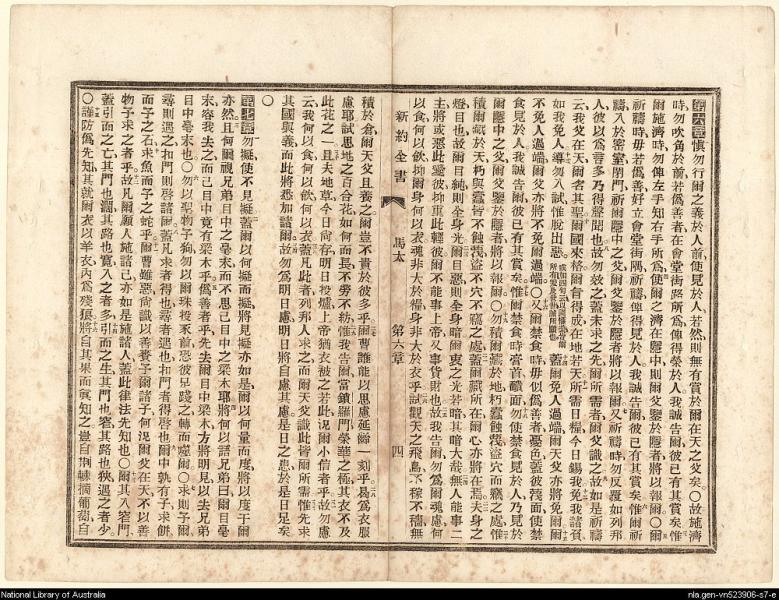 第六章慎勿行爾之義於人前使見於人若然則無有賞於爾在天之父矣○故施濟
時勿吹角於前若僞善者在會堂街路所爲俾得榮於人我誠告爾彼已有其賞矣惟
爾施濟時勿俾左手知右手所爲使爾之濟在隱中則爾父鑒於隱者將以報爾○爾
祈禱時毋若僞善好立會堂街隅祈禱俾得見於人我誠告爾彼已有其賞矣惟爾祈
禱入於密室閉門祈爾隱中之父爾父鑒於隱者將以報爾又祈禱時勿反覆如列邦
人彼以爲言多乃得聲聞也故勿效之蓋未求之先爾所需者爾父識之故如是祈禱
云我父在天爾名其聖爾國來格爾旨得成在地若天所需日糧今日錫我免我諸負
如我免人導勿入試惟脫出惡
蓋爾免人過端爾天父亦將免爾爾
不免人過端爾父亦將不免爾過端○又爾禁食時毋似僞善者憂色蓋彼變面使禁
食見於人我誠告爾彼已有其賞矣惟爾禁食時膏首頮面勿使禁食見於人乃見於
爾隱中之父爾父鑒於隱者將以報爾○勿積爾藏於地蠹蝕穴而竊之處惟
積爾藏於天蠹皆不蝕盜不穴不竊之處蓋爾藏所在爾心亦將在焉夫身之
燈目也故爾目純則全身光爾目惡則全身暗爾衷之光若暗其暗大哉無人能事二
主將或惡此愛彼抑重此輕彼爾不能事上帝又事貨財也故我告爾勿爲爾魂慮何
以食何以飲抑爾身何以衣魂非大於糧身非大於衣乎試觀天之飛鳥不稼不穡無
新約全書
馬太
第六章
四
積於倉爾天父且養之爾豈不貴於彼多乎爾曹誰能以思慮延齡一刻乎曷爲衣服
慮耶試思地之百合花如何而長不勞不紡惟我告爾當瑣羅門榮華之極其衣不及
此花之一且夫地草今日尚存明日投爐上帝猶衣被之若此況爾小信者乎故勿慮
云我何以食何以飲何以衣蓋凡此者列邦人求之而爾天父識此皆爾所需惟先求
其國與義而此將悉加諸爾故勿爲明日慮明日將自慮其慮是日之患於是日足矣
○
第七章勿擬使不見擬蓋爾以何擬而擬將見擬亦如是爾以何量而度將以度于爾
亦然且何爾視兄弟目中之毫末而不思己目中之梁木耶將何以語兄弟曰爾目毫
末容我去之而己目中竟有梁木乎僞善者乎先去爾目中梁木方將明見以去兄弟
目中毫末也○勿以聖物予狗勿以爾珠投豕前恐彼足踐之轉而噬爾○求則予爾
尋則遇之扣門則啓諸爾蓋凡求者得也尋者遇也扣門者得啓也爾中孰有子求餅
而予之石求魚而予之蛇乎爾曹雖惡尚識以善賚予爾諸子何況爾父在天不以善
物予求之者乎故凡爾願人施諸己亦如是施諸人蓋此律法先知也○爾其入窄門
蓋引而之亡其門也濶其路也寬入之者多引而之生其門也窄其路也狹遇之者少
○謹防僞先知其就爾衣以羊衣內爲殘狼將自其果而眞知之豈自荊棘摘葡萄自